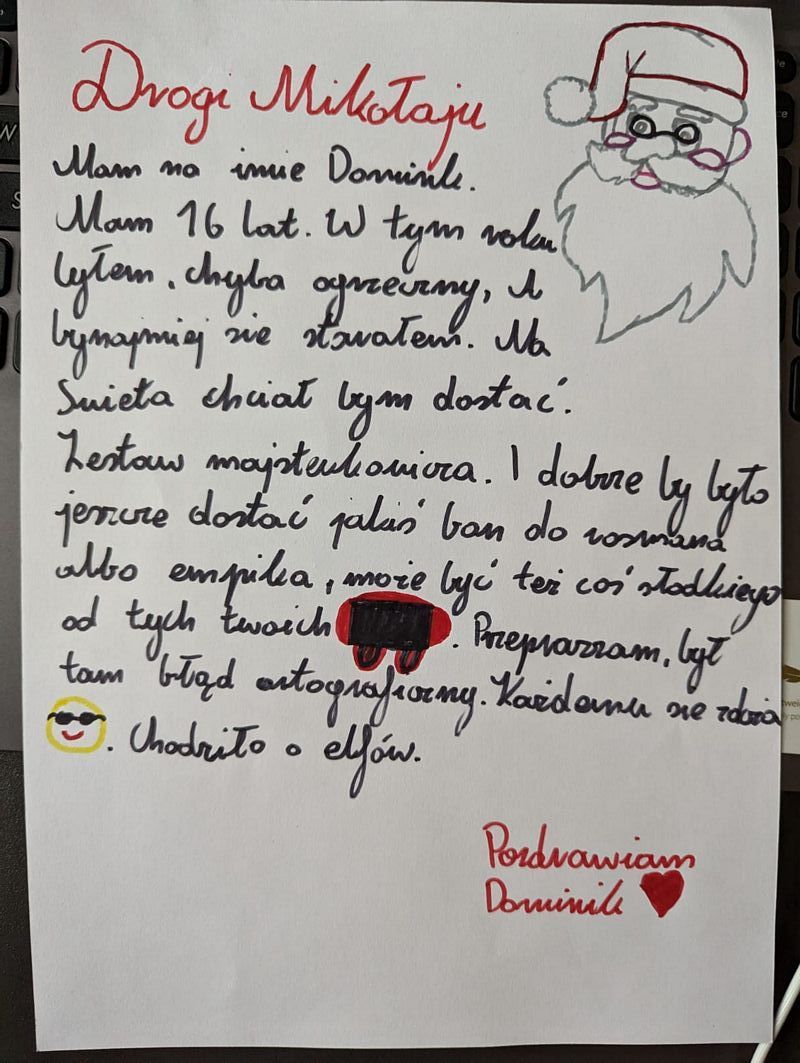 Drogi Mikołaju
Mam na imie Dominik.
Mam 16 lat. W tym roku
byłem, chyba ogrzeczny, A
bynajmniej sie starałem. Na
Swieta chciał bym dostać.
Zestaw majsterkowicza. I dobrze by było
jeszcze dostać jakiś bon do rosmana
albo empika, może być też coś słodkiego
od tych twoich . Przeprarzam, był
tam błąd ortograficzny. Każdemu sie zdaża
. Chodziło o elfów.
Pozdrawiam
Dominik